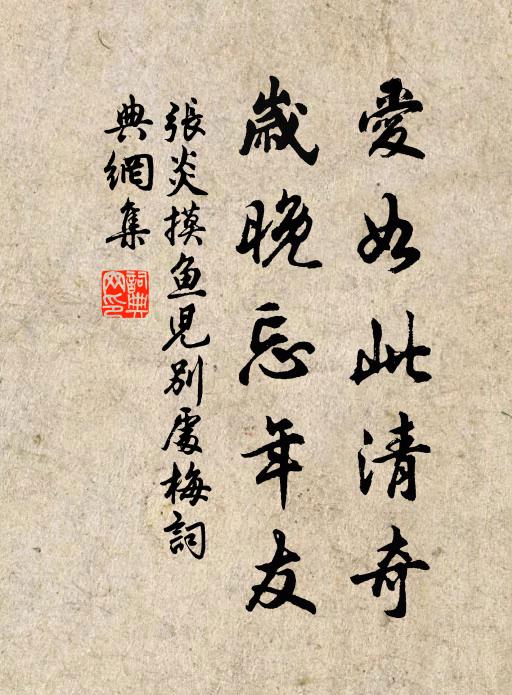 愛如此清奇
歲晚忘年友
張炎摸魚兒別處梅詞
典網集
詞典网印